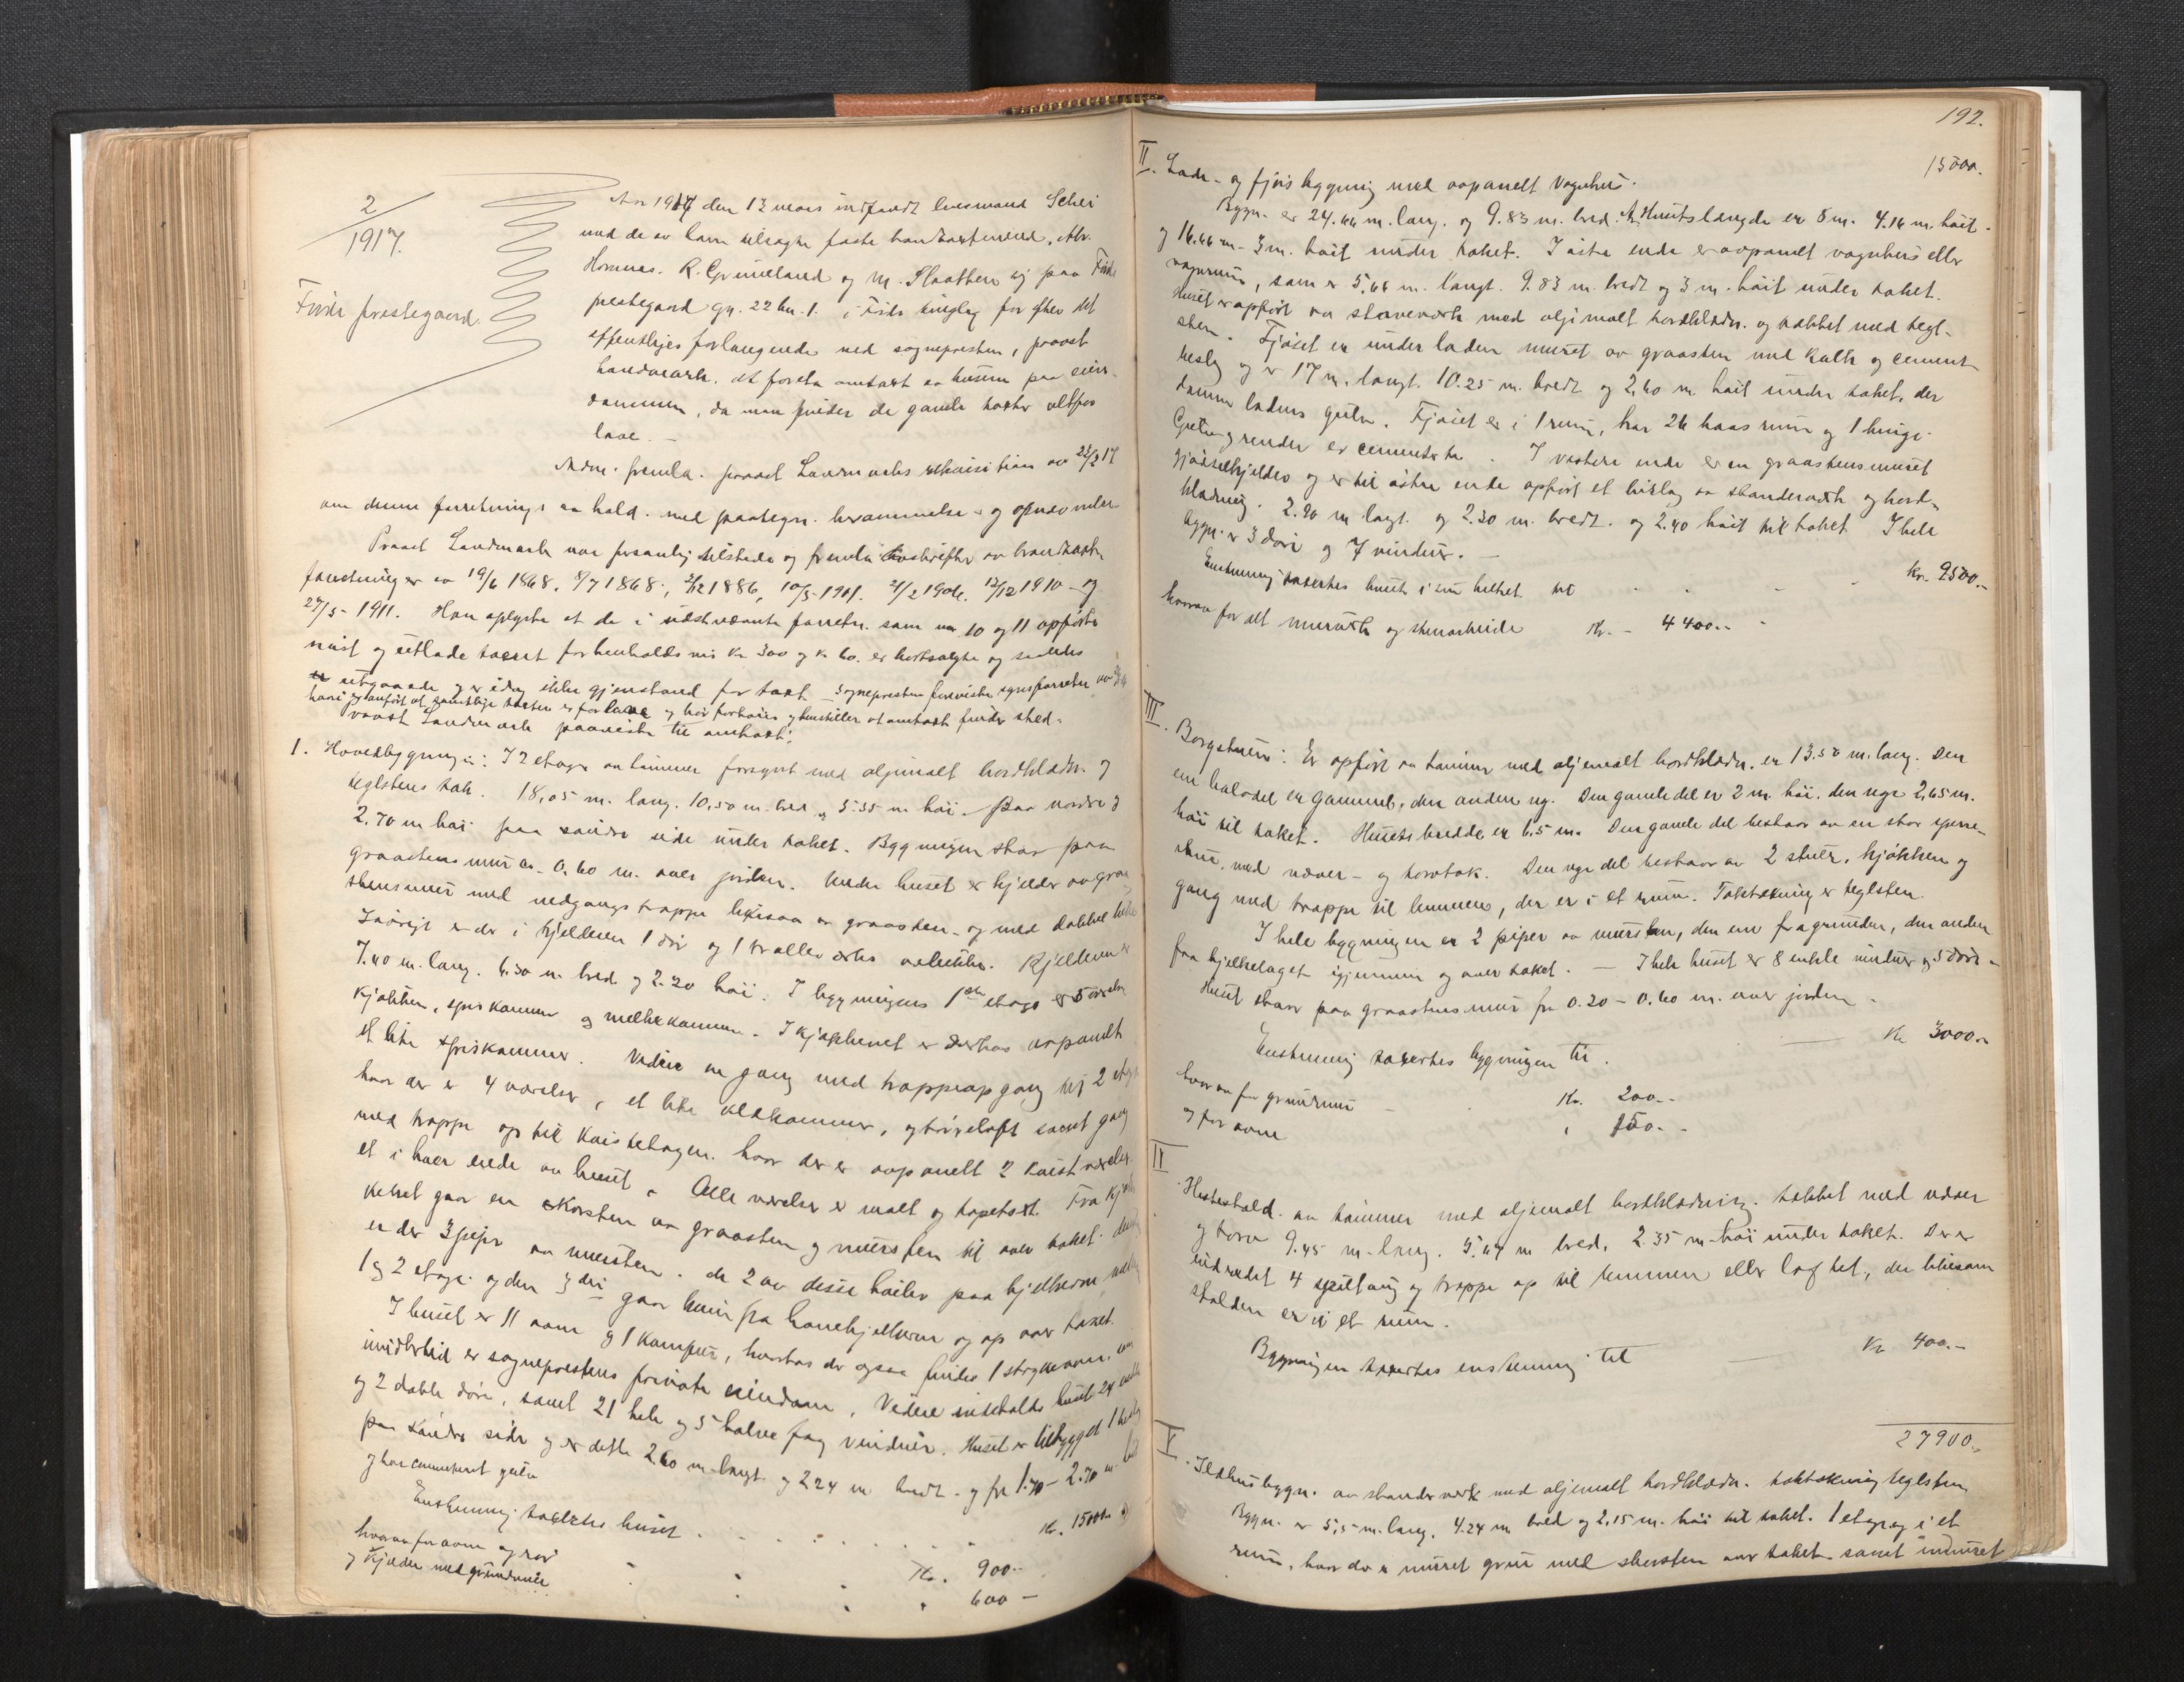 2/1917.
Förde prestegaard.
Aar 1917 den 13 mars indfandt lensmand Schei
med de av ham tilsagte faste brandtakstmænd, Abr.
Hornnæs. R. Grimeland og M. Slaatten sig paa Förde
prestegaard gn. 22 bn. 1. i Förde tinglag for efter det
offentliges forlangende ved sognepresten, provst
Landmark, at foreta omtakst av husene paa eien-
dommen, da man finder de gamle takster altfor
lave. —
Adm. fremla. provst Landmarks rekvisition av 22/2 17
om denne forretnings avhold. med paategn. berammelse og
Provst Landmark var personlig tilstede og fremla avskrifter av brandtakst
forretninger av 19/6 1868. 8/7 1868, 2/12 1886, 10/5 1901. 21/2 1906. 12/12 1910 — og
27/5 - 1911. Han oplyste at de i sidstnævnte forretn. som no 10 og 11 opførte
nøst og utlade taxert for henholdsvis Kr 300 og Kr 60. er bortsolgte og saaledes
utgaaede og er idag ikke gjenstand for takst — Sognepresten foreviste synsforretn. av
hvori er anført at samtlige takster er for lave og bør forhøies og henstiller at omtakst finder sted.
Provst Landmark paaviste til omtakst:
1. Hovedbygningen: I 2 etager av tømmer forsynt med oljemalt bordklædn. og
teglstens tak. 18,05 m. lang. 10,50 m. bred og 5.35 m. høi. paa nordre og
2.70 m høi paa søndre side under taket. Bygningen staar paa
graastens mur ca. 0.60 m. over jorden. Under huset er kjelder av graa-
stensmur med nedgangstrappe likesaa av graasten — og med dobbel
Iøvrigt er der i kjelderen 1 dør og 1 tralleverks Kjelderen er
7.40 m. lang. 6.30 m. bred og 2.20 høi. I bygningens 1ste etage er 5 værelser
kjøkken, spiskammer og melkekammer. I kjøkkenet er derhos avpanelt
et lite spiskammer. Videre en gang med trappeopgang til 2 etage
hvor der er 4 værelser, et lite klækammer, og törreloft samt gang
med trappe op til kvistetagen. hvor der er avpanelt 2 kvistværelser
et i hver ende av huset. Alle værelser er malt og tapetsert. Fra kjøk-
kenet gaar en skorsten av graasten og mursten til over taket. desuten
er der 3 piper av mursten. de 2 av disse hviler paa bjelkerne mellem
1 og 2 etage. og den 3die gaar kun fra hanebjelkerne og op over taket.
I huset er 11 ovne og 1 komfur, hvorhos der ogsaa findes 1 strykeovn, som
imidlertid er sogneprestens private eiendom. Videre indeholder huset 24 enkle
og 2 doble döre, samt 21 hele og 5 halve fag vinduer. Huset er tilbygget 1 bislag
paa søndre side og er dette 2.60 m langt. og 2.24 m bredt. og fra 1.70 — 2.70 m høit
og har cementert gulv
Enstemmig taxertes huset . . . Kr. 15000.-
hvorav for ovne og rör . . . Kr. 900.-
og kjelder med grundmur . . . " 600 —
192.
15000.
II. Lade- og fjösbygning med avpanelt Vognhus.
Bygn. er 24.66 m. lang. og 9.83 m. bred. Av Husets længde er 8 m. 4.16 m. høit
og 16.66 m - 3 m. høit under taket. I østre ende er avpanelt vognhus eller
vognrum, som er 5,66 m. langt. 9.83 m. bredt og 3 m. høit under taket.
Huset er opført av staveverk med oljemalt bordklædn. og tækket med tegl-
sten. Fjöset er under laden muret av graasten med kalk og cement
beslag og er 17 m. langt. 10.25 m. bredt og 2,60 m. høit under taket, der
danner ladens gulv. Fjöset er i 1 rum, har 26 baasrum og 1 binge.
Gulv og render er cementerte. I vestre ende er en graastensmuret
gjødselkjelder og er til østre ende opført et bislag av standerverk og bord-
klædning. 2.90 m langt. og 2.30 m. bredt. og 2,40 høit til taket. I hele
bygn. er 3 döre og 7 vinduer. —
Enstemmig taxertes huset i sin helhet til . . . Kr. 9500.-
hvorav for alt murverk og stenarbeide Kr. - 4400.-
III. Borgstuen: Er opført av tømmer med oljemalt bordklædn. er 13.50 m. lang. Den
ene halvdel er gammel, den anden ny. Den gamle del er 2 m. høi, den nye 2,65 m.
høi til taket. Husets bredde er 6,5 m. Den gamle del bestaar av en stor sperre-
stue, med næver- og torvtak. Den nye del bestaar av 2 stuer, kjøkken og
gang med trappe til lemmen, der er i et rum. Taktækning er teglsten.
I hele bygningen er 2 piper av mursten, den ene fra grunden, den anden
fra bjelkelaget igjennem og over taket. — I hele huset er 8 enkle vinduer og 5 döre
Huset staar paa graastensmur fra 0.20 — 0.60 m. over jorden.
Enstemmig taxertes bygningen til. — Kr 3000.-
hvorav for grundmur Kr. 200.-
og for ovne " 150.-
IV. Hestestald. av tømmer med oljemalt bordklædning. tækket med næver
og torv 9.45 m. lang. 5.64 m bred. 2.35 m høi under taket. Der er
indredet 4 spiltaug og trappe op til lemmen eller loftet, der likesom
stalden er i et rum.
Bygningen taxertes enstemmig til — Kr 400.-
27900.-
V. Ildhusbygn. av standerverk med oljemalt bordklædn. taktækning teglsten
Bygn. er 5,5 m. lang. 4.24 m bred og 2,15 m. høi til taket. 1 etage og i et
rum, hvor der er muret grue med skorsten over taket samt indmuret